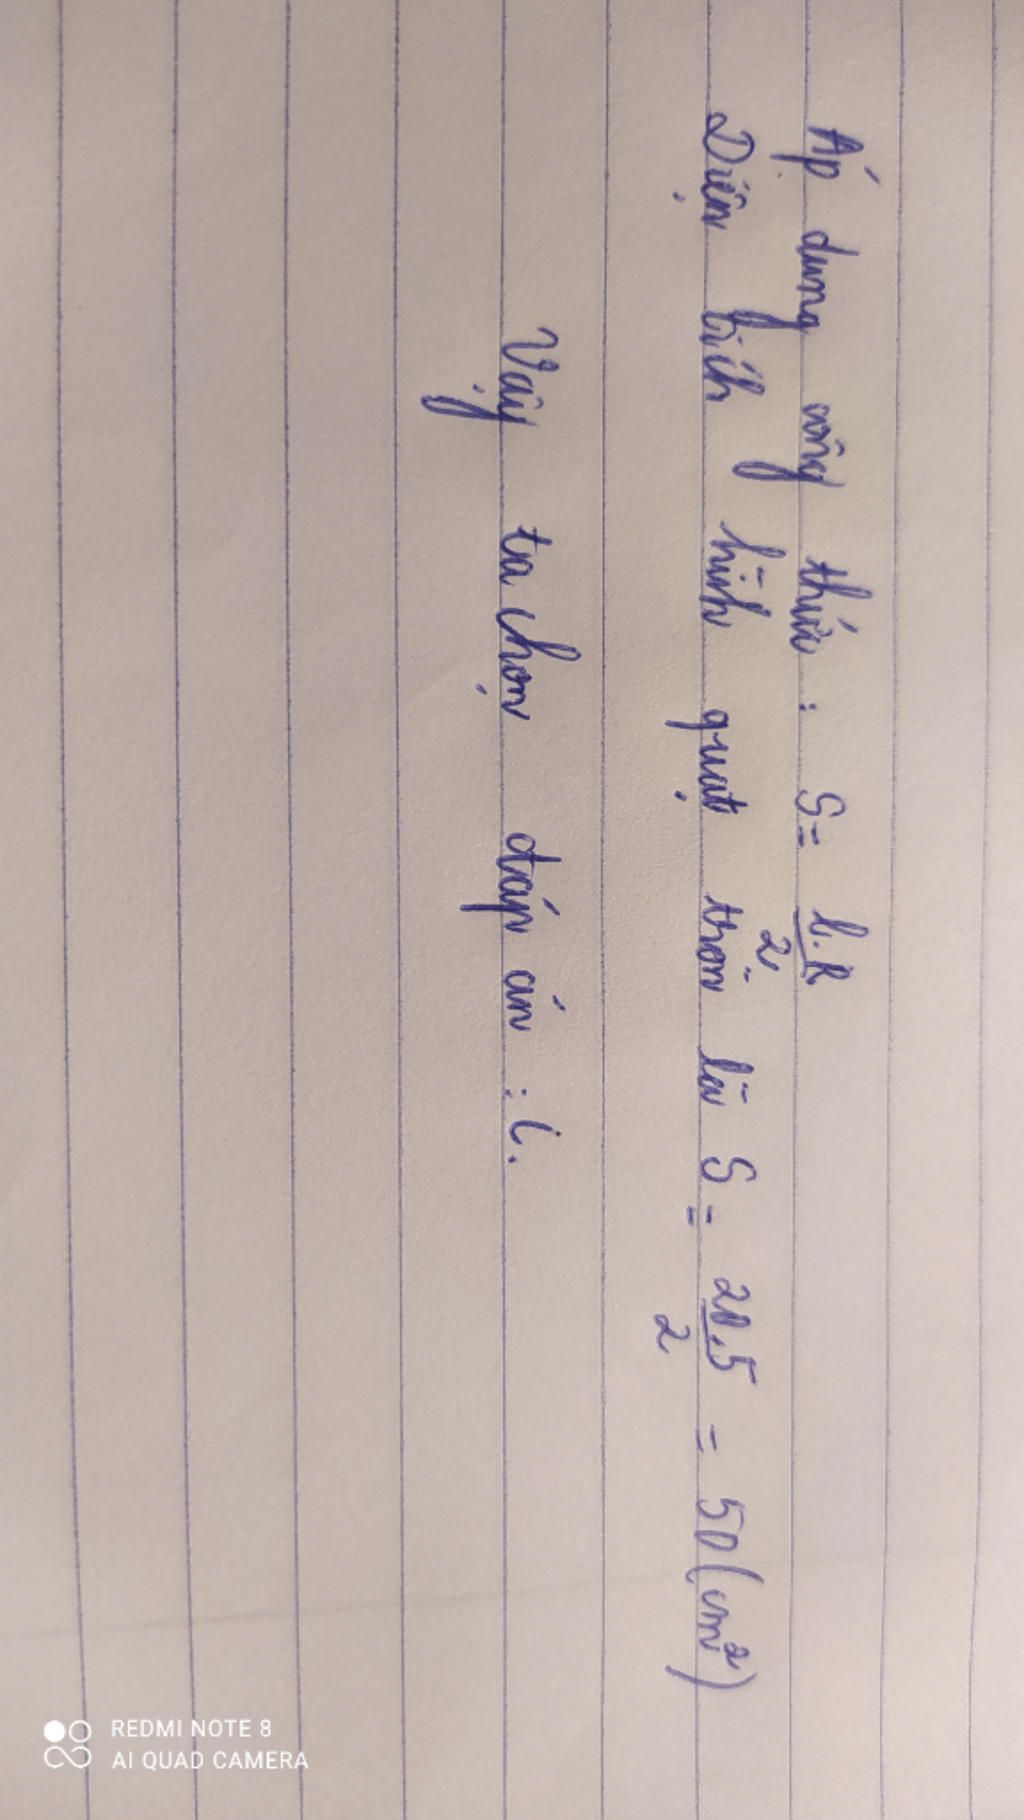 Áp dụng công thức : S = l.R / 2
Diện tích hình quạt tròn là S = 20.5 / 2 = 50 (cm²)
Vậy ta chọn đáp án : C.
REDMI NOTE 8
AI QUAD CAMERA